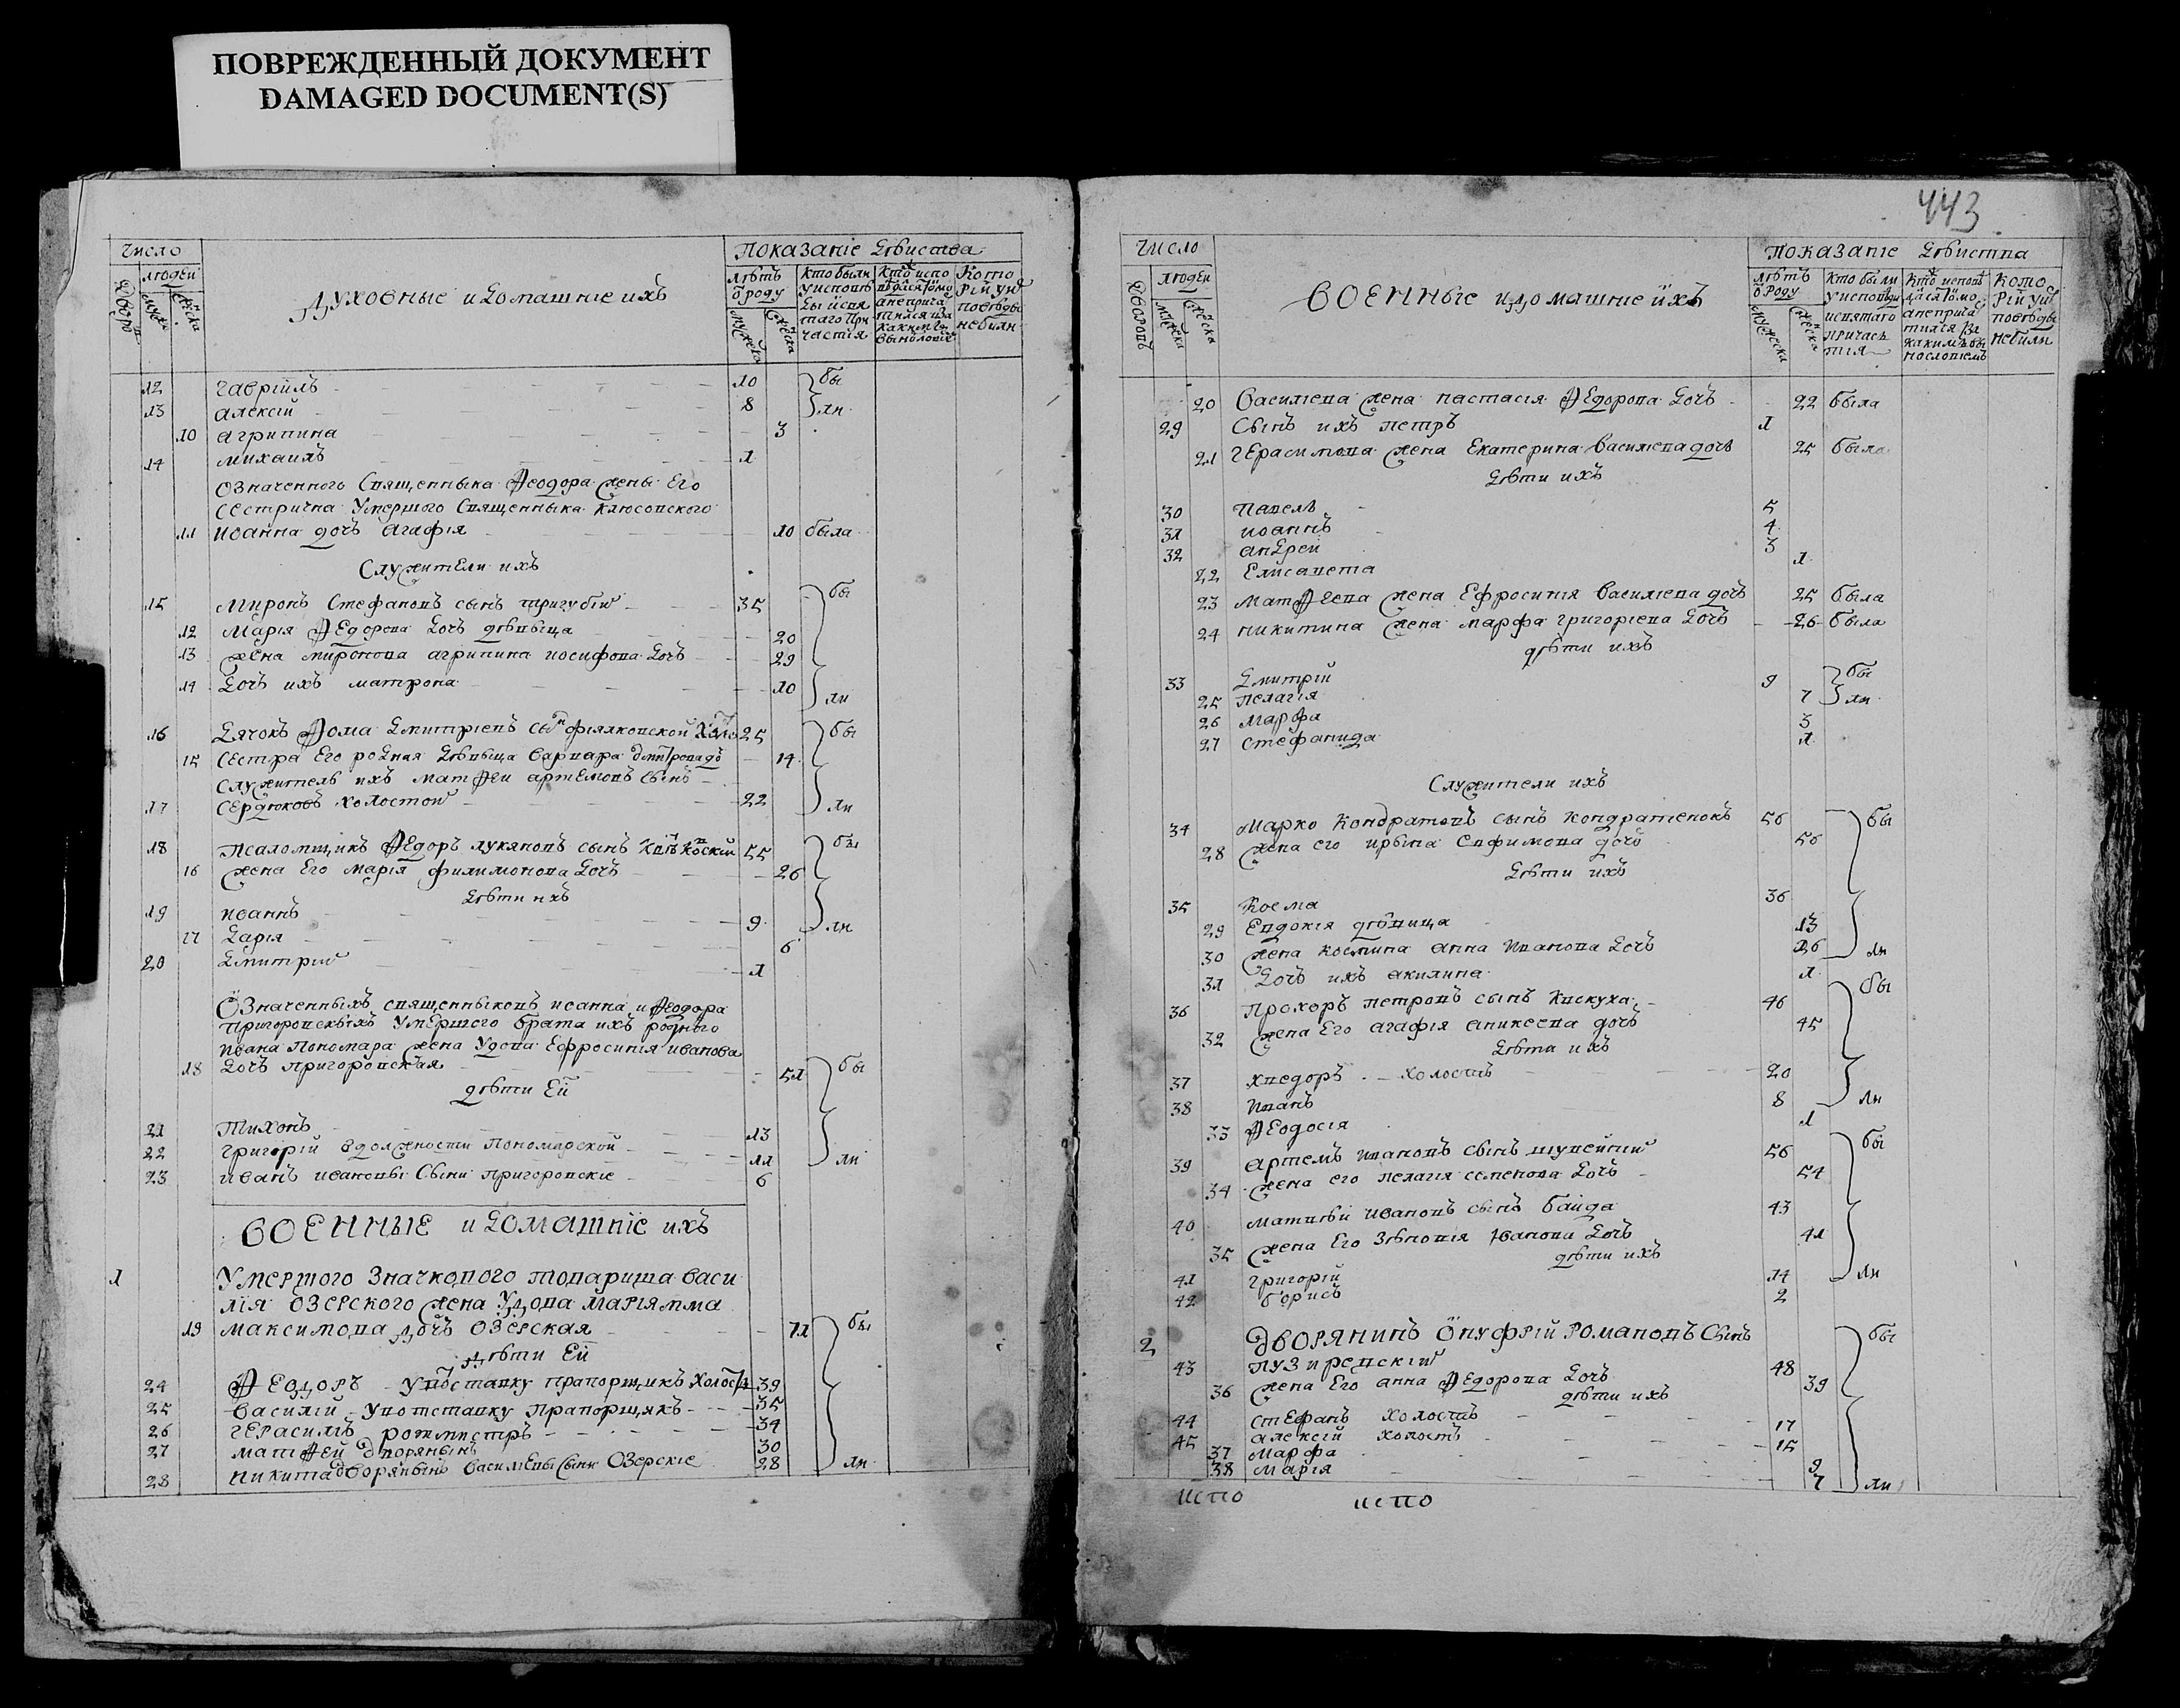 ПОВРЕЖДЕННЫЙ ДОКУМЕНТ
DAMAGED DOCUMENT(S)
Число
людей
Духовные и домашніе ихъ
Показаніе действа
12 Гавріилъ 10 бы
13 Алексій 8 ли
10 Агрипина 3
14 Михаилъ 1
Означенного Священныка Ѳеодора жены Его
сестрична Умершого Священныка
11 Иоанна дочь Агафія 10 была
Служители ихъ
15 Миронъ Стефановъ сынъ тригубій 35 бы
12 Марія Ѳедорова дочъ дѣвыца 20
13 жена миронова агрипина иосифова дочъ 29
14 дочъ ихъ матрона 10 ли
16 Дячокъ Ѳома Дмитріевъ 25 бы
15 Сестра Его родная дѣвыца варвара 14
служитель ихъ матѲей артемовъ сынъ
17 Сердюковъ холостой 22 ли
18 Псаломщикъ Ѳедоръ лукяновъ сынъ 55 бы
16 жена Его Марія филимонова дочъ 26
дѣти ихъ
19 иоаннъ 9 ли
17 дарія 6
20 Дмитрій 1
Означенныхъ священныковъ иоанна и Ѳеодора
пригоровскыхъ Умершого брата ихъ родного
ивана Пономара жена Удова Ефросинія иванова
18 дочъ пригоровская 51 бы
дѣти Ей
21 Тихонъ 13
22 Григорій вдолжности Пономарской 11 ли
23 иванъ ивановы сыни пригоровскіе 6
ВОЕННЫЕ и домашніе ихъ
1 Умершого Значкового товариша васи
лія Озерского жена Удова маріямма
19 максимова дочъ Озерская 71 бы
дѣти Ей
24 Ѳедоръ Уотставку прапорщикъ 39
25 Василій Увотставку прапорщикъ 35
26 Герасимъ ротмистръ 34
27 матѲей дворянынъ 30
28 никита дворянынъ васильевы сыни Озерскіе 28 ли
443
Число
людей
дворовъ
ВОЕННЫЕ и домашніе ихъ
Показаніе действа
20 Василіева жена настасія Ѳедорова дочъ 22 была
29 Сынъ ихъ петръ 1
21 Герасимова жена Екатерина василіева дочъ 25 была
дѣти ихъ
30 Павелъ 5
31 иоаннъ 4
32 андрей 3
22 Елисавета 1
23 матѲеева жена Ефросинія василіева дочъ 25 была
24 никитина жена марфа григоріева дочъ 26 была
дѣти ихъ
33 Дмитрій 9 бы
25 пелагія 7 ли
26 марфа 3
27 стефанида 1
Служители ихъ
34 Марко Кондратовъ сынъ кондратенокъ 56 бы
28 жена его ирына Евфимова дочъ 56
дѣти ихъ
35 Косма 36
29 Евдокія дѣвица 13
30 жена космина анна иванова дочъ 26 ли
31 дочъ ихъ акилина 1
36 Прохоръ петровъ сынъ 46 бы
32 жена Его агафія аникеева дочъ 45
дѣти ихъ
37 хведоръ холостъ 20
38 иванъ 8 ли
33 Ѳеодосія 1
39 артемъ ивановъ сынъ 56 бы
34 жена его пелагія семенова дочъ 54
40 матвѣй ивановъ сынъ байда 43
35 жена Его Зѣновія иванова дочъ 41
дѣти ихъ
41 григорій 14 ли
42 борисъ 2
2 дворянинъ Онуфрій Романовъ Сынъ бы
43 пузиревскій 48
36 жена Его анна Ѳедорова дочъ 39
дѣти ихъ
44 стефанъ холостъ 17
45 алексій холостъ 15
37 марфа 9
38 марія 7 ли
испо испо